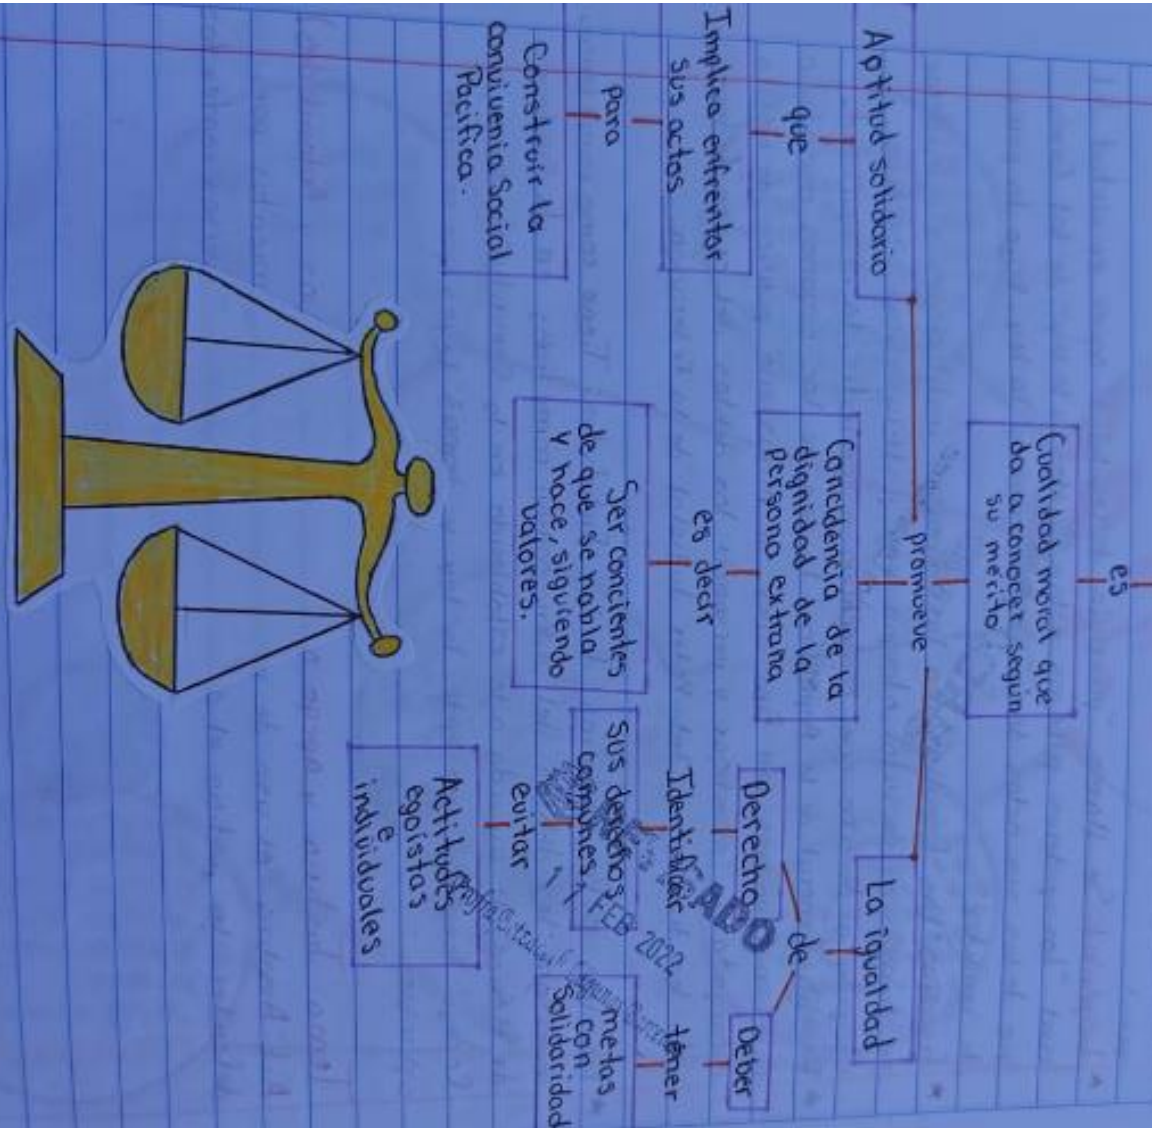 es
Cualidad moral que
da a conocer según
su mérito.
promueve
Aptitud solidario
que
Implica enfrentar
sus actos
para
Construir la
convivenia Social
Pacifica.
Concidencia de la
dignidad de la
persona extraña
es decir
Ser concientes
de que se habla
y hace, siguiendo
valores.
La igualdad
de
Derecho
Identificar
sus derechos
comunes,
evitar
Actitudes
egoístas
e
individuales
Deber
tener
metas
con
Solidaridad
FEB 2022